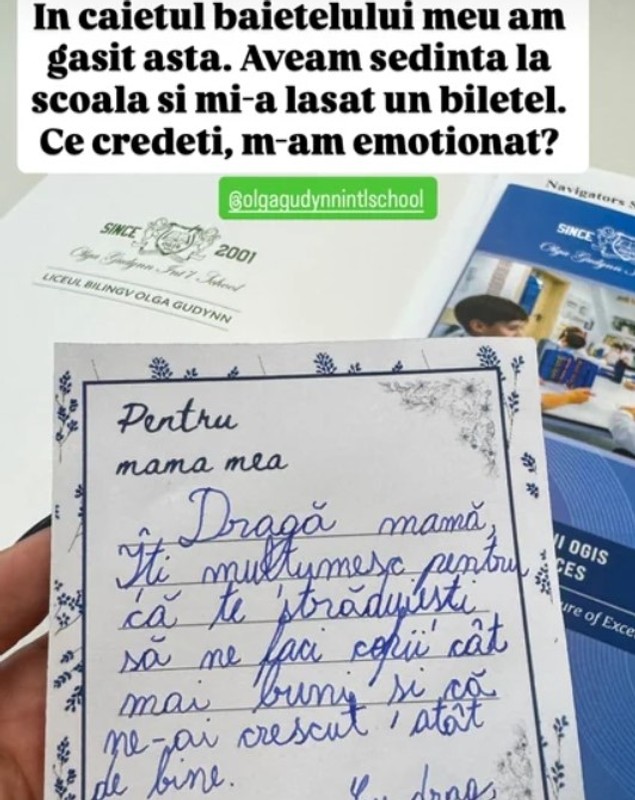 In caietul baietelului meu am
gasit asta. Aveam sedinta la
scoala si mi-a lasat un biletel.
Ce credeti, m-am emotionat?
@olgagudynnintlschool
Navigators
SINCE 2001
Olga Gudynn Int'l School
LICEUL BILINGV OLGA GUDYNN
SINCE
Olga Gudynn
Pentru
mama mea
Dragă mamă,
Îți mulțumesc pentru
că te străduiești
să ne faci copii cât
mai buni și că
ne-ai crescut atât
de bine.
Cu drag,